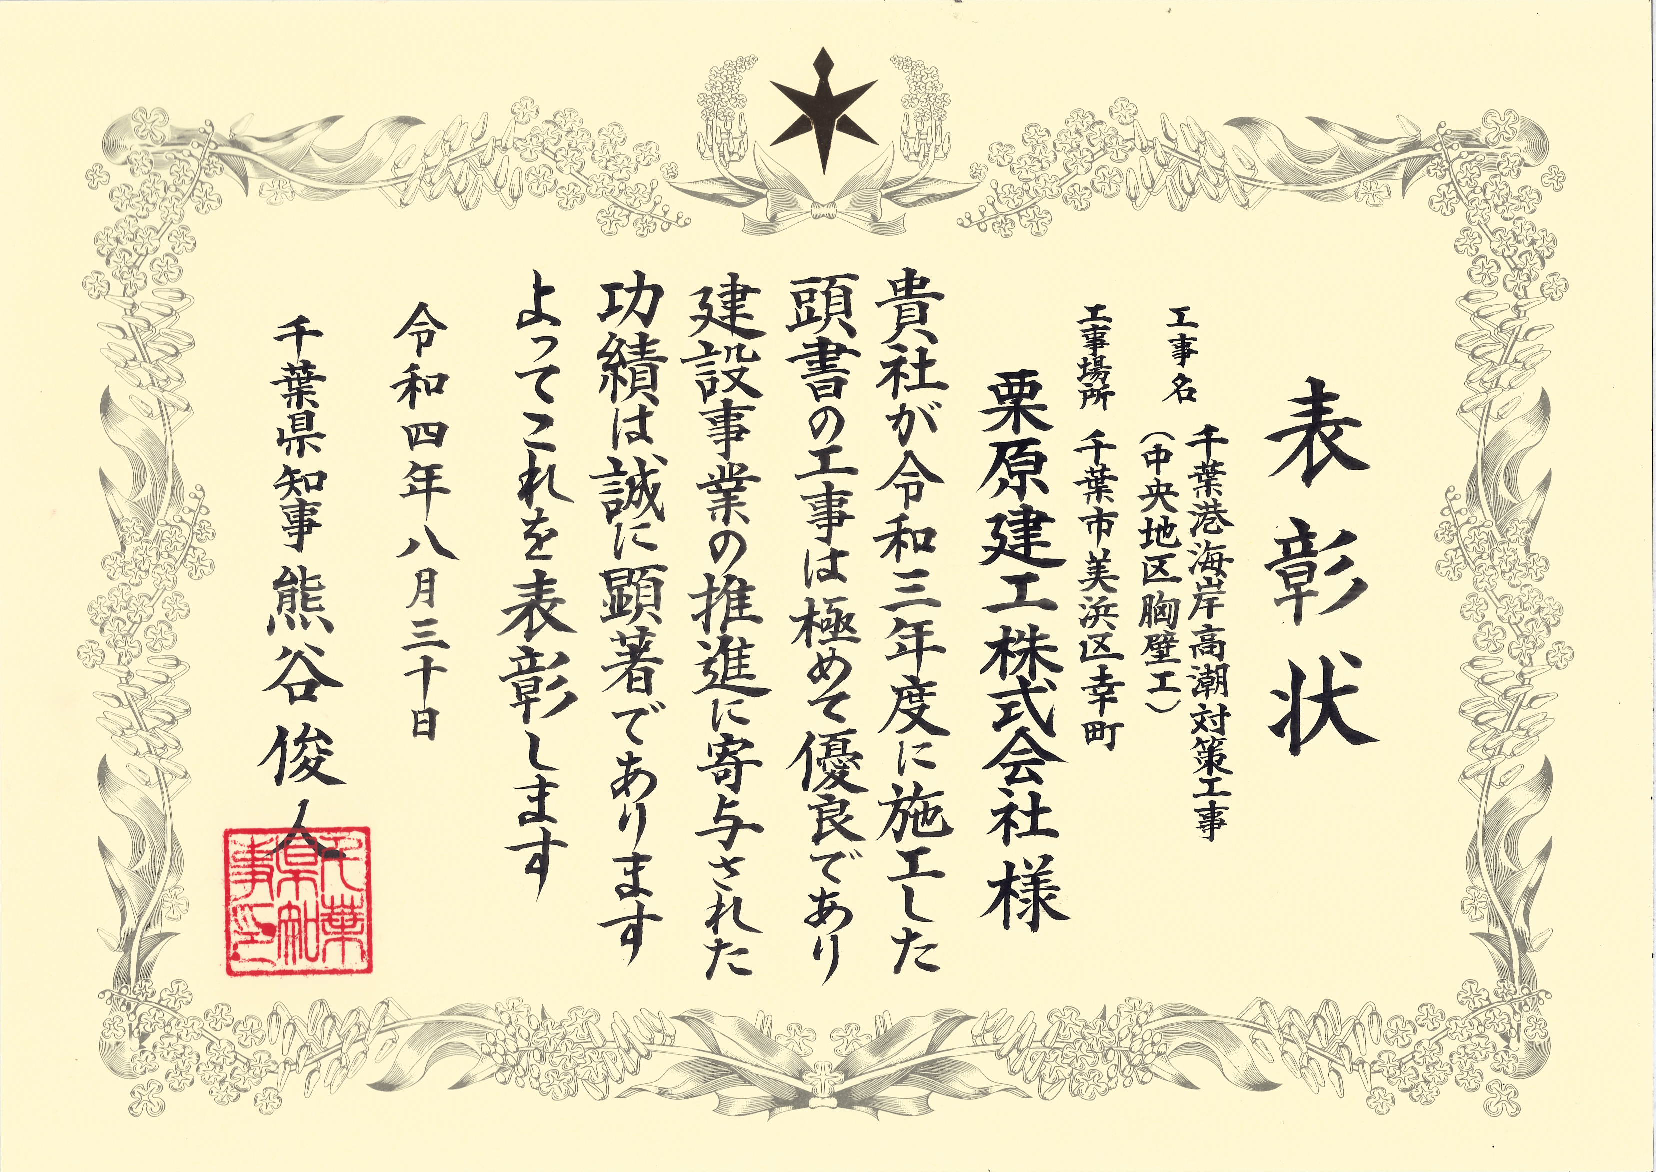 表彰状
工事名 千葉港海岸高潮対策工事
(中央地区胸壁工)
工事場所 千葉市美浜区幸町
栗原建工株式会社様
貴社が令和三年度に施工した
頭書の工事は極めて優良であり
建設事業の推進に寄与された
功績は誠に顕著であります
よってこれを表彰します
令和四年八月三十日
千葉県知事 熊谷俊人
千葉
県知
事印